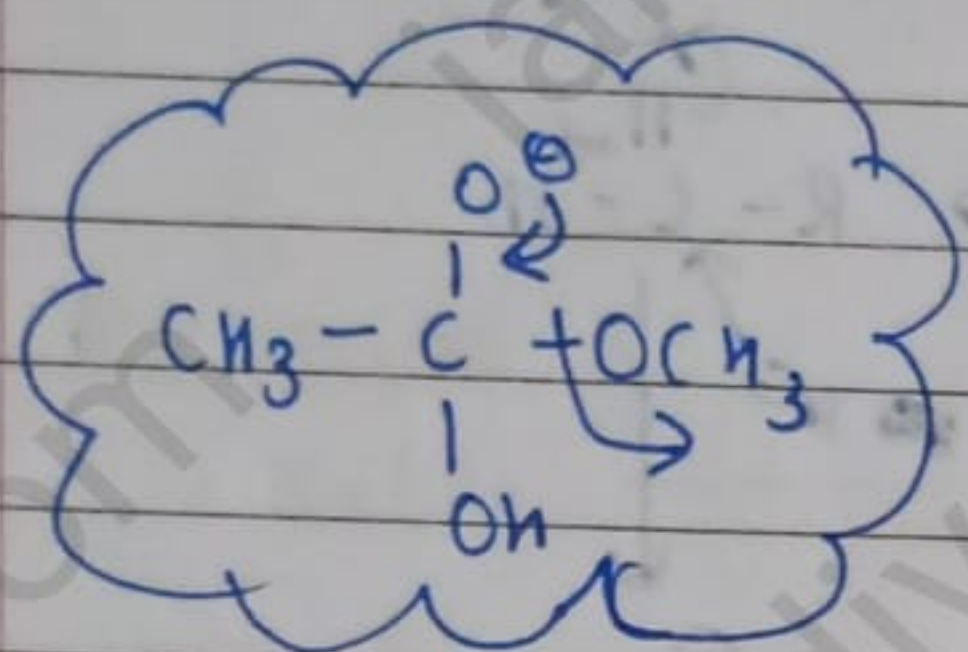 O ⊖
CH3 - C + OCH3
OH